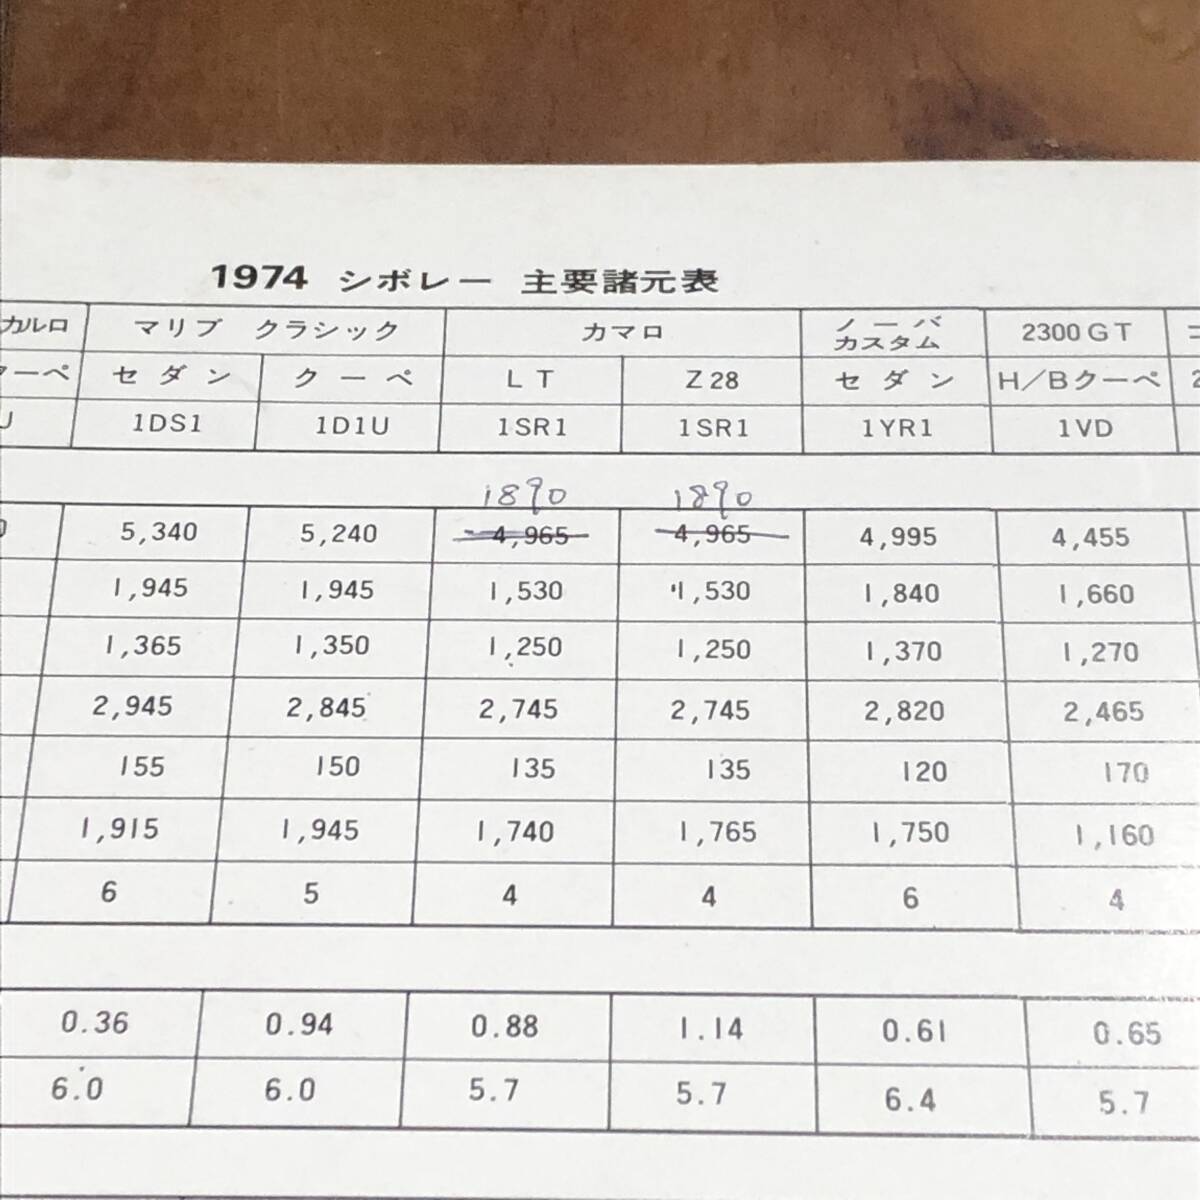 1974 シボレー 主要諸元表
カルロ マリブ クラシック カマロ ノーバ カスタム 2300GT
クーペ セダン クーペ LT Z28 セダン H/Bクーペ 2
U 1DS1 1D1U 1SR1 1SR1 1YR1 1VD
1890 1890
0 5,340 5,240 4,965 4,965 4,995 4,455
1,945 1,945 1,530 1,530 1,840 1,660
1,365 1,350 1,250 1,250 1,370 1,270
2,945 2,845 2,745 2,745 2,820 2,465
155 150 135 135 120 170
1,915 1,945 1,740 1,765 1,750 1,160
6 5 4 4 6 4
0.36 0.94 0.88 1.14 0.61 0.65
6.0 6.0 5.7 5.7 6.4 5.7